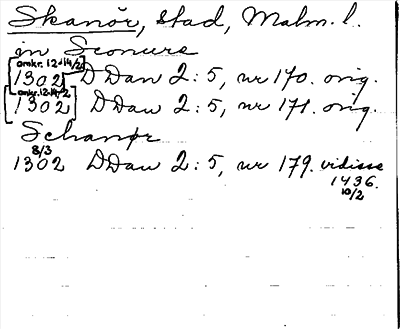 Skanör, stad, Malm. l.
in Sconure
omkr. 12-14/2
1302 DDan 2:5, nr 170. orig.
omkr. 12-14/2
1302 DDan 2:5, nr 171. orig.
Schanør
8/3
1302 DDan 2:5, nr 179. vidisse
1436.
10/2